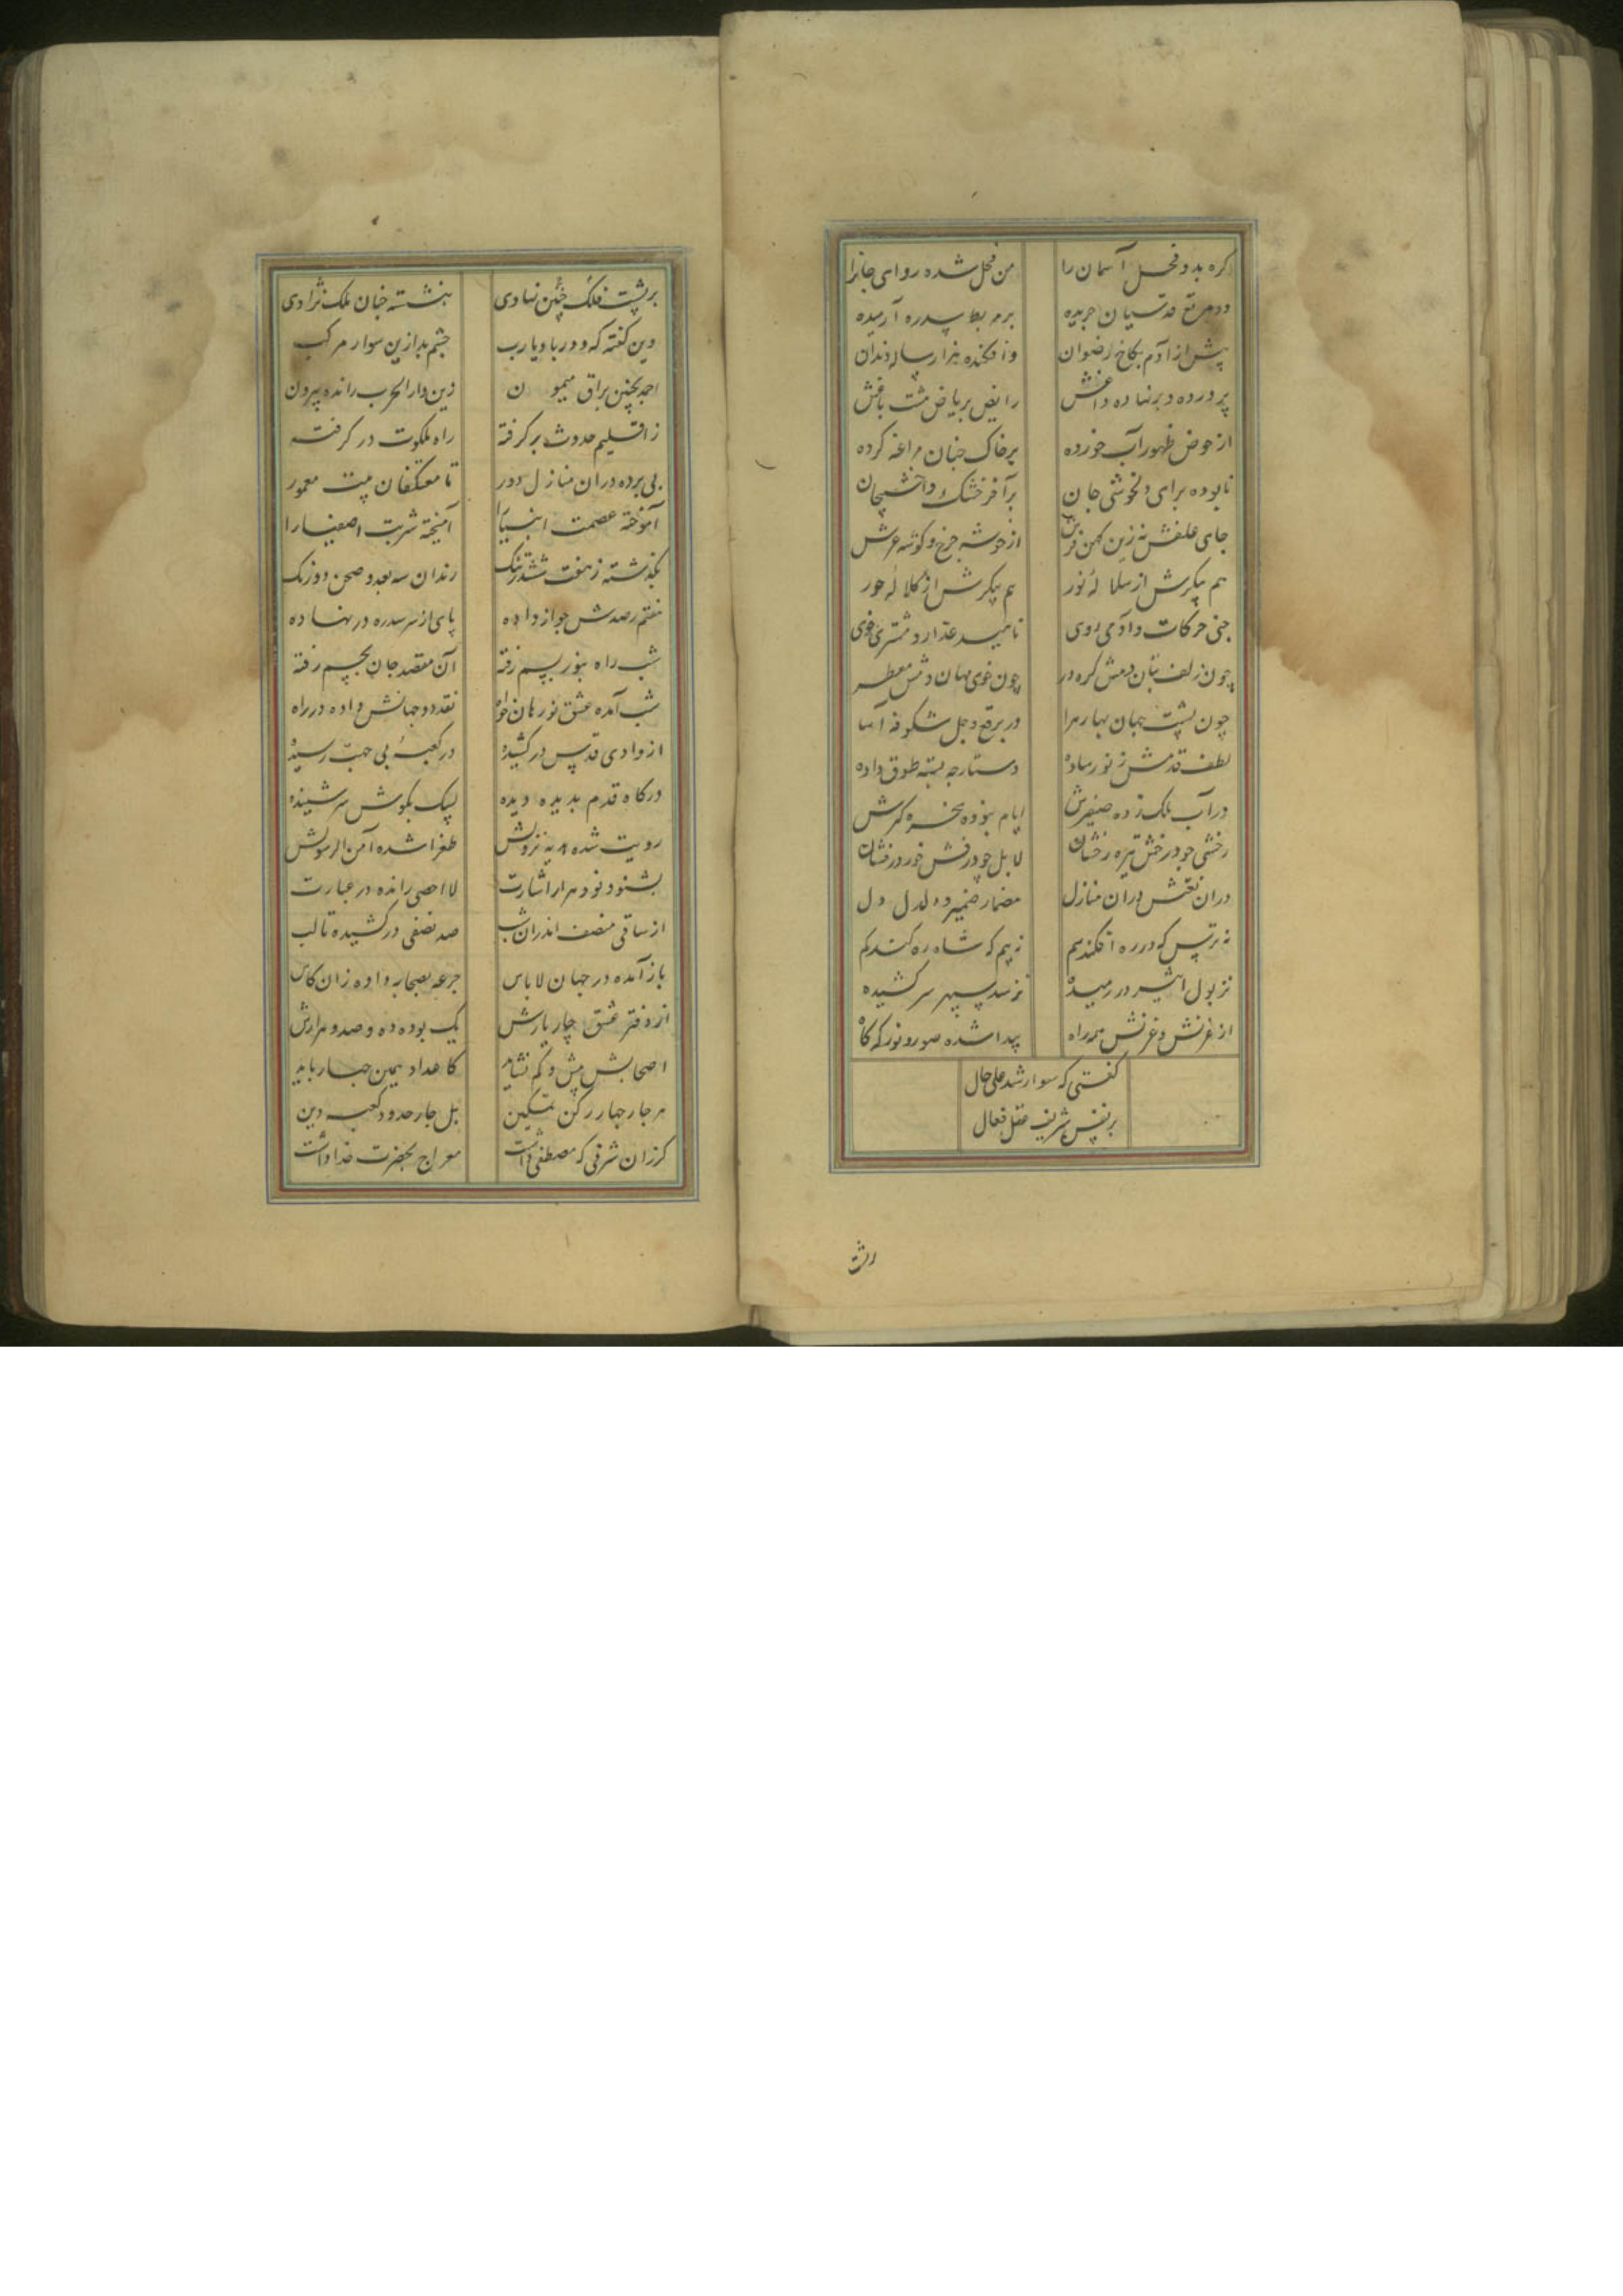 کره بد و فحل آسمان را
من فحل شده روای جانرا
در مرتع قدسیان چریده
بر مربط سدره آرمیده
پیش از آدم بکاخ رضوان
وافکنده هزار ساله دندان
پرورده و برنهاده داغش
رایض بریاض هشت باغش
از حوض طهور آب خورده
بر خاک جنان مراغه کرده
نابوده برای دلخوشی جان
برآخر خشک
جای علفش نه زین کهن فرش
از خوشه چرخ و کوشه عرش
هم پیکرش از سلاله نور
هم پیکرش از کلاله حور
جنی حرکات و آدمی روی
ناهید عذار و مشتری خوی
چون زلف بتان دمش کره در
چون خوی مهان دمش معطر
چون پشت جهان بهار هرا
در برقع و جل شکوفه آسا
لطف قدمش ز نور ساده
دستارچه بسته طوق داده
در آب نمک زده صفیرش
ایام نبوده سخره کیرش
رخشی چو درخش تیره رخشان
لابل چو درفش خور درفشان
دران نقش بران منازل
مضمار ضمیر و دلدل دل
نه ترس که در ره افکند سم
نه بیم که شاه ره کند کم
نز پول اثیر در رمیده
نز سد سپهر سر کشیده
از غرش و غرنش همه راه
پیدا شده صور و نور که کاه
کفتی که سوار شد علی حال
بر نفس شریف عقل فعال
بر پشت فلک چنین نهادی
بنشسته چنان ملک نژادی
دین کفته که دور باد یا رب
چشم بد ازین سوار مرکب
احمد بچنین براق میمون
زین دار الحرب رانده بیرون
ز اقلیم حدوث برکرفته
راه ملکوت در کرفته
بی پرده دران منازل دور
تا معتکفان بیت معمور
آموخته عصمت انبیا را
آمیخته شربت اصفیا را
بکذشته ز هفت ششدر تنک
رندان سه بعد و صحن دو رنک
هفتم رصدش جواز داده
پای از سر سدره در نهاده
شب راه بنور بسم رفته
آن مقصد جان بجسم رفته
شب آمده عشق نورهان خواه
نقد دو جهانش داده در راه
از وادی قدس در کشیده
در کعبه بی جهت رسیده
درکاه قدم بدیده دیده
لبیک بکوش سر شنیده
رویت شده هدیه نزولش
طغرا شده آمن الرسولش
بشنود نود هزار اشارت
لا احصی رانده در عبارت
از ساقی منصف اندران شب
صد نصفی در کشیده تا لب
باز آمده در جهان لاباس
جرعه بصحابه داده زان کاس
از دفتر عشق چار یارش
یک بوده ده و صد و هزارش
اصحابش بیش و کم نشاید
کاعداد همین چهار باید
هر چار چهار رکن تمکین
بل چار حدود کعبه دین
کز زان شرفی که مصطفی داشت
معراج بحضرت خدا داشت